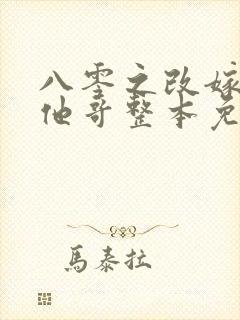 八零之改嫁
他哥整本免
馬泰拉